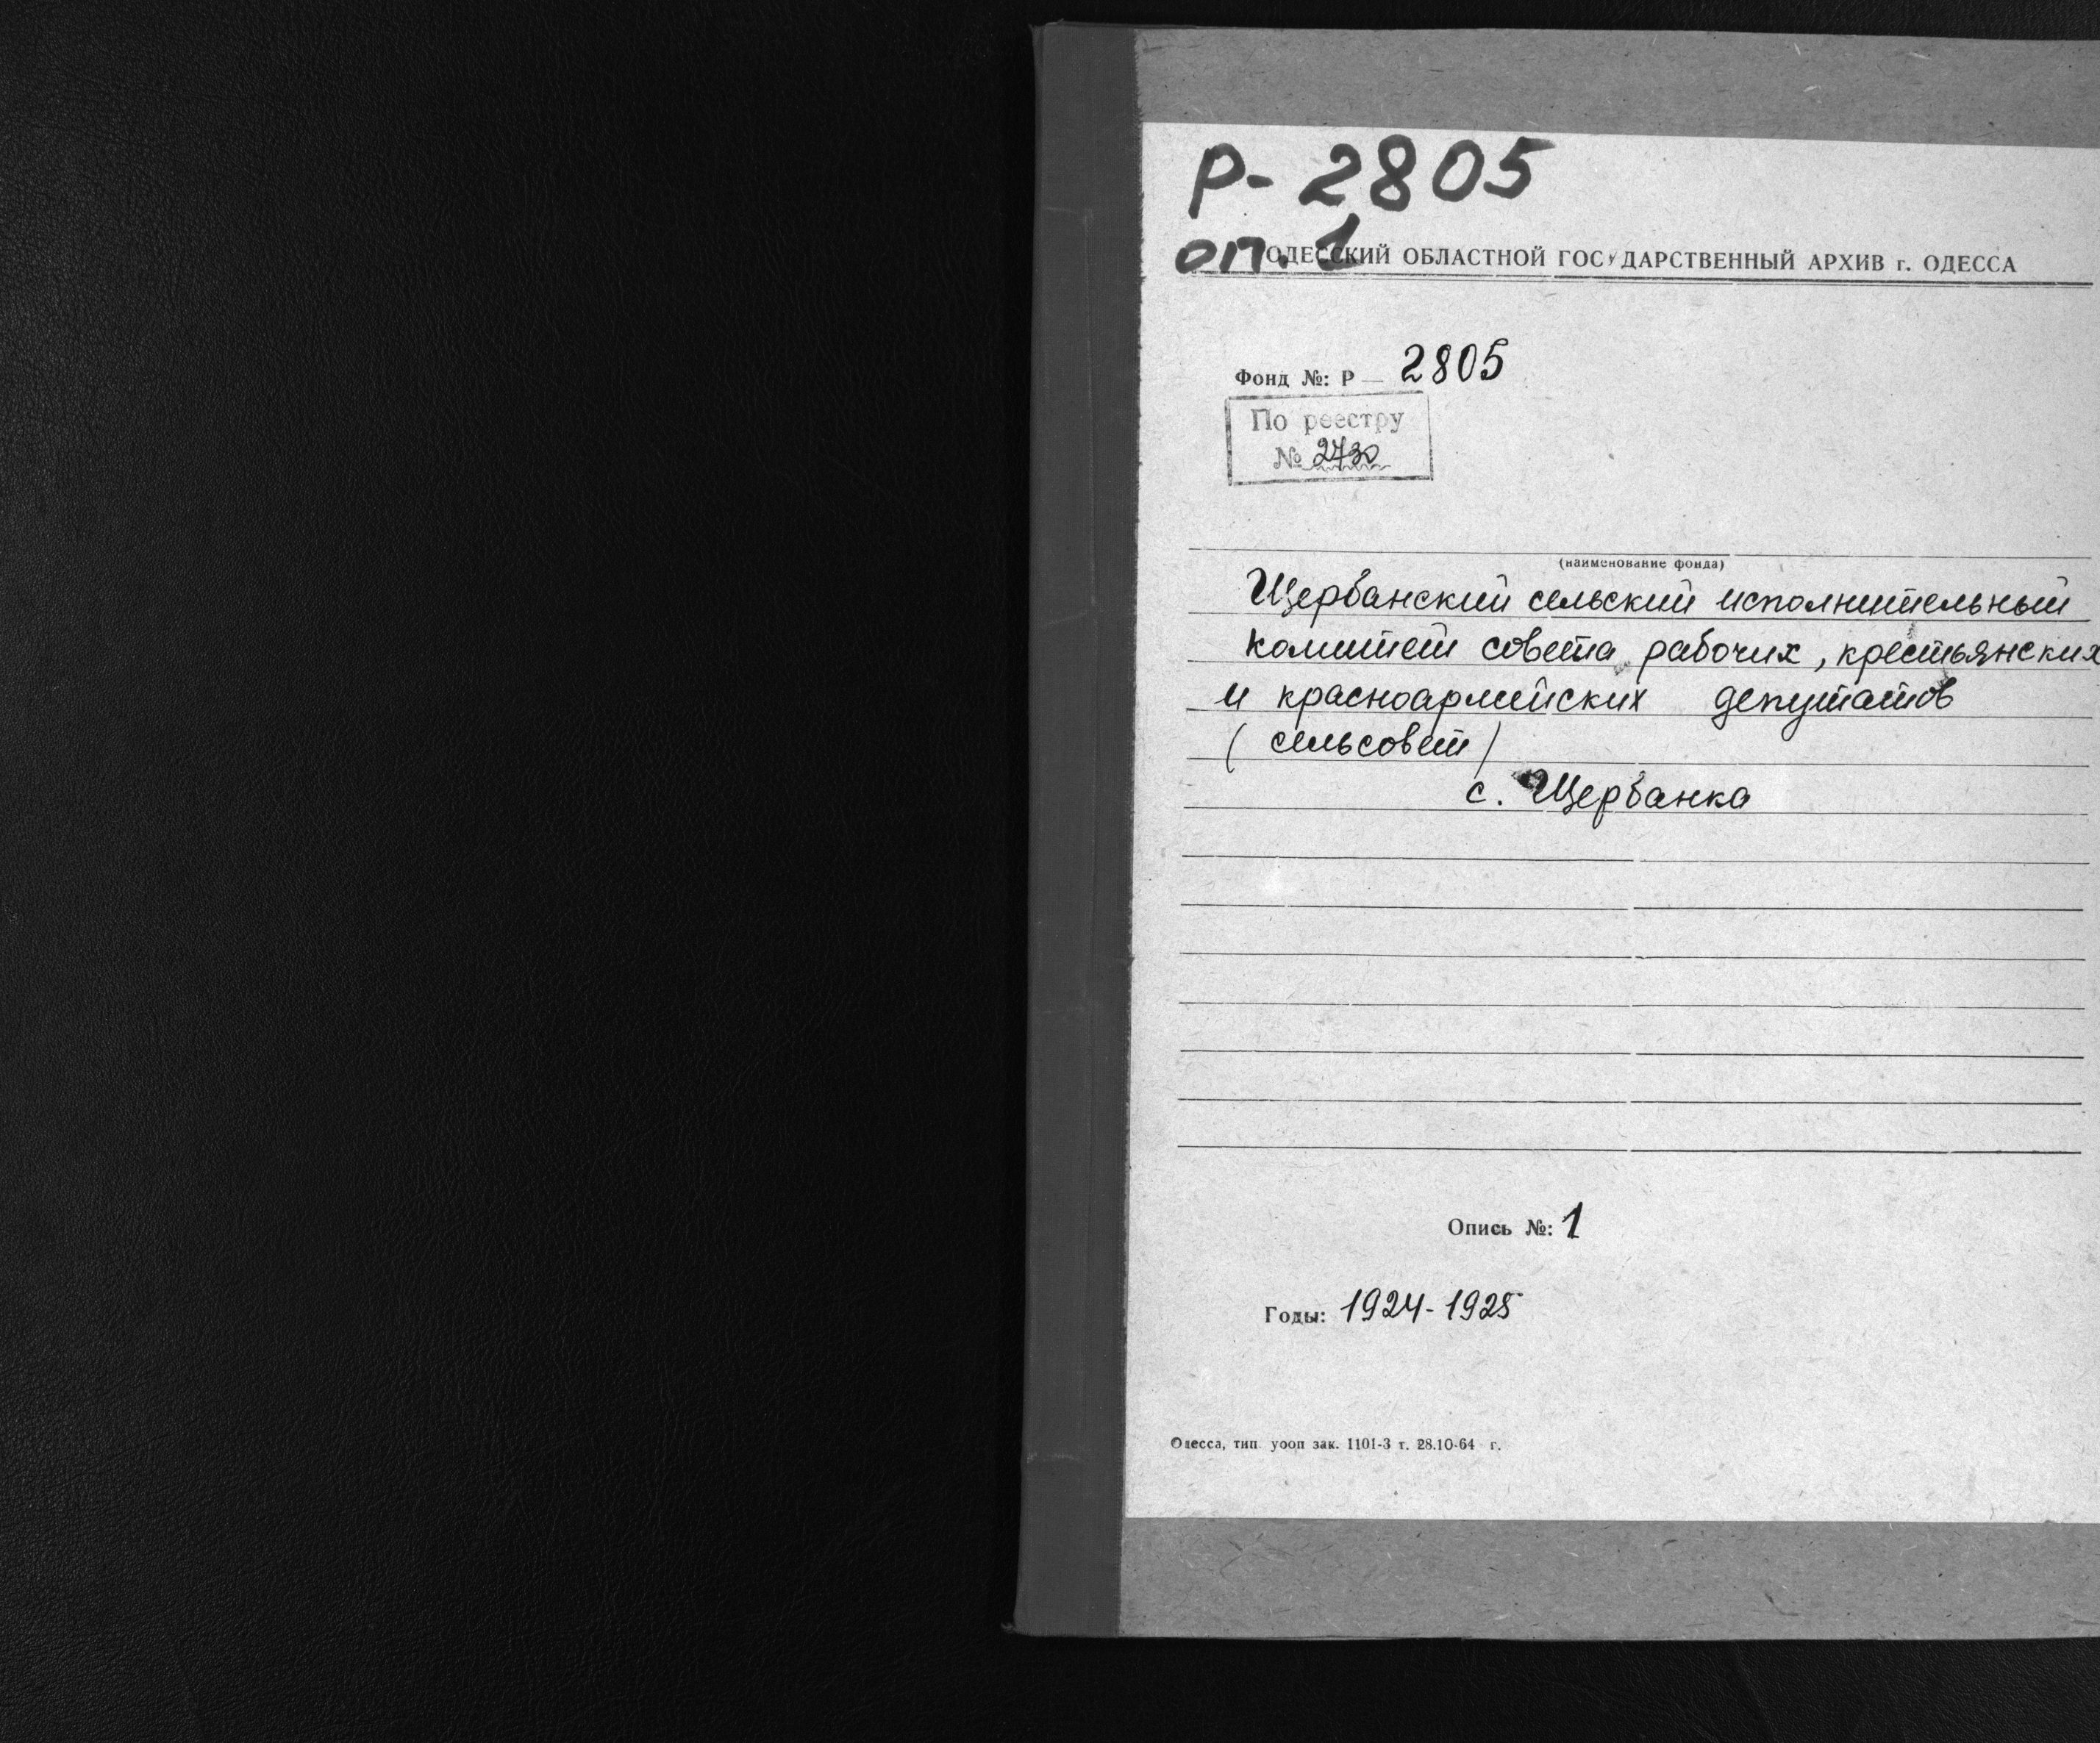 Р-2805
оп. 1
ОДЕССКИЙ ОБЛАСТНОЙ ГОСУДАРСТВЕННЫЙ АРХИВ г. ОДЕССА
Фонд №: Р — 2805
По реестру
№ 2730
(наименование фонда)
Щербанский сельский исполнительный
комитет совета рабочих, крестьянских
и красноармейских депутатов
(сельсовет)
с. Щербанка
Опись №: 1
Годы: 1924-1925
Одесса, тип. уооп зак. 1101-3 т. 28.10-64 г.